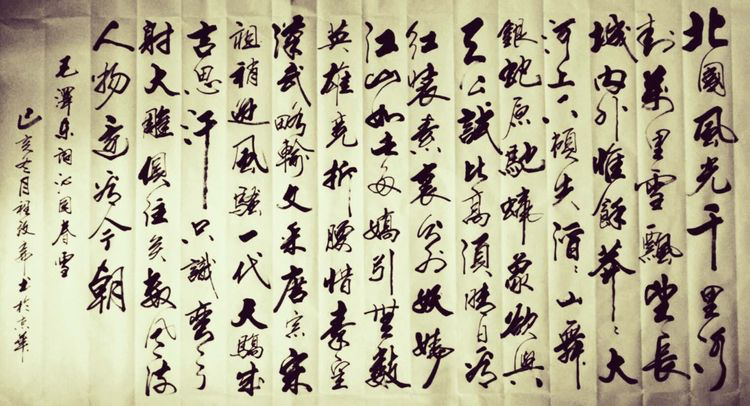 北國風光千里冰
封萬里雪飄望長
城內外惟餘莽〻大
河上下頓失滔〻山舞
銀蛇原馳蠟象欲與
天公試比高須晴日看
紅裝素裹分外妖嬈
江山如此多嬌引無數
英雄競折腰惜秦皇
漢武略輸文采唐宗宋
祖稍遜風騷一代天驕成
吉思汗只識彎弓
射大雕俱往矣數風流
人物還看今朝
毛澤東詞沁園春雪
己亥冬月程書於京華